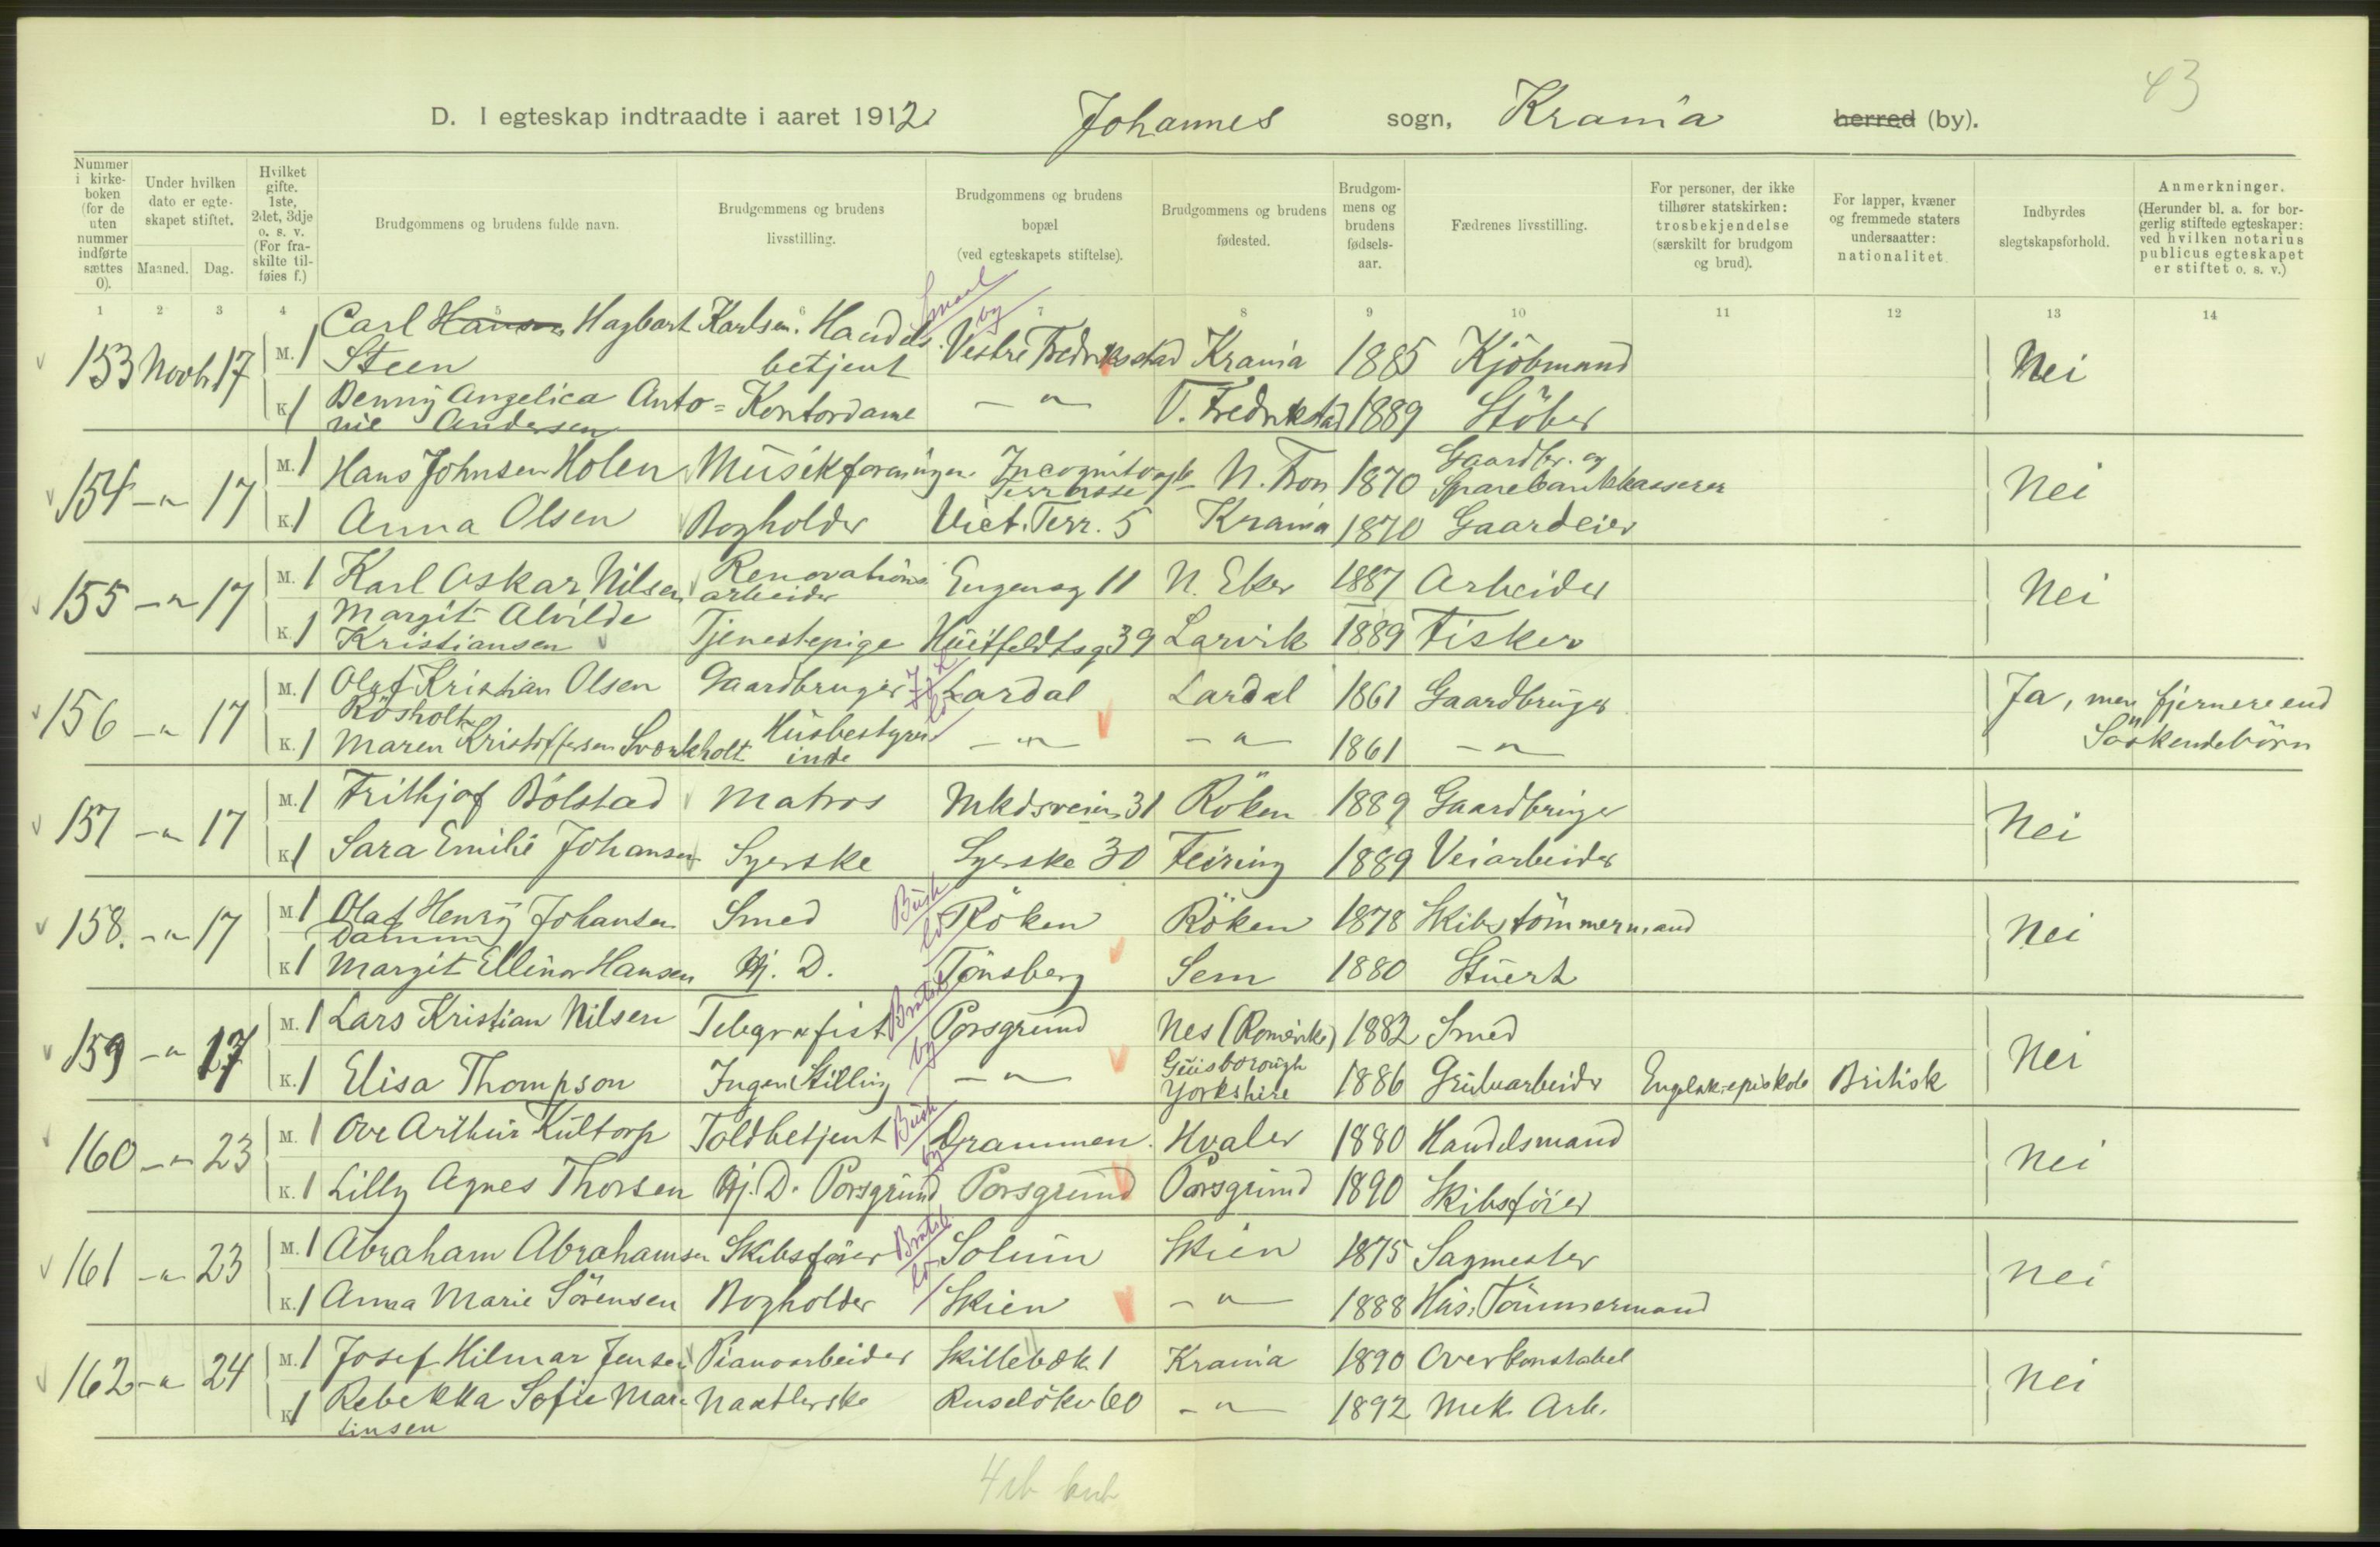 43
D. I egteskap indtraadte i aaret 1912 Johannes sogn, Krania herred (by).
Nummer i kirke-boken (for de uten nummer indførte sættes 0).
Under hvilken dato er egte-skapet stiftet.
Maaned. Dag.
Hvilket gifte. 1ste, 2det, 3dje o. s. v. (For fra-skilte til-føies f.)
Brudgommens og brudens fulde navn.
Brudgommens og brudens livsstilling.
Brudgommens og brudens bopæl (ved egteskapets stiftelse).
Brudgommens og brudens fødested.
Brudgom-mens og brudens fødsels-aar.
Fædrenes livsstilling.
For personer, der ikke tilhører statskirken: trosbekjendelse (særskilt for brudgom og brud).
For lapper, kvæner og fremmede staters undersaatter: nationalitet
Indbyrdes slegtskapsforhold.
Anmerkninger. (Herunder bl. a. for bor-gerlig stiftede egteskaper: ved hvilken notarius publicus egteskapet er stiftet o. s. v.)
1 2 3 4 5 6 7 8 9 10 11 12 13 14
153 Novbr 17 M. 1 Carl Hansen Hagbart Karlsen Steen Handelsbetjent Smaal by Vestre Fredrikstad Krania 1885 Kjöbmand Nei
K. 1 Benny Angelica Anto=nie Andersen Kontordame — " — V. Fredrikstad 1889 Stöber
154 — " — 17 M. 1 Hans Johnsen Holen Musikforeningen Incognito Terrasse N. Fron 1870 Gaardbr. og Sparebankkasserer Nei
K. 1 Anna Olsen Bogholder Vict. Terr. 5 Krania 1870 Gaardeier
155 — " — 17 M. 1 Karl Oskar Nilsen Renovationsarbeider Eugensg 11 N. Eker 1887 Arbeider Nei
K. 1 Margit Alvilde Kristiansen Tjenestepige Huitfeldtsg 39 Larvik 1889 Fisker
156 — " — 17 M. 1 Olaf Kristian Olsen Rösholt Gaardbruger Lardal Lardal 1861 Gaardbruger Ja, men fjernere end Söskendebörn
K. 1 Maren Kristoffersen Svarkholt Husbestyrerinde — " — — " — 1861 — " —
157 — " — 17 M. 1 Frithjof Bölstad Matros Mkdsveien 31 Röken 1889 Gaardbruger Nei
K. 1 Sara Emilie Johansen Syerske Syerske 30 Feiring 1889 Veiarbeider
158. — " — 17 M. 1 Olaf Henry Johansen Damm Smed Busk lö Röken Röken 1878 Skibstömmermand Nei
K. 1 Margit Ellinor Hansen Hj. D. Tönsberg Sem 1880 Stuert
159 — " — 17 M. 1 Lars Kristian Nilsen Telegrafist Bratsb by Porsgrund Nes (Romerike) 1882 Smed Nei
K. 1 Elisa Thompson Ingen Stilling — " — Guisborough Yorkshire 1886 Grubearbeider Engelsk-episkole Britisk
160 — " — 23 M. 1 Ove Arthur Kultorp Toldbetjent Busk by Drammen. Hvaler 1880 Handelsmand Nei
K. 1 Lilly Agnes Thorsen Hj. D. Porsgrund Porsgrund Porsgrund 1890 Skibsförer
161 — " — 23 M. 1 Abraham Abrahamsen Skibsförer Bratsb. lö Solum Skien 1875 Sagmester Nei
K. 1 Anna Marie Sörensen Bogholder Skien — " — 1888 Hus. Tömmermand
162 — " — 24 M. 1 Josef Hilmar Jensen Pianoarbeider Skillebæk 1 Krania 1890 Overkonstabel Nei
K. 1 Rebekka Sofie Martinsen Naatlerske Ruselökv 60 — " — 1892 Mek. Arb.